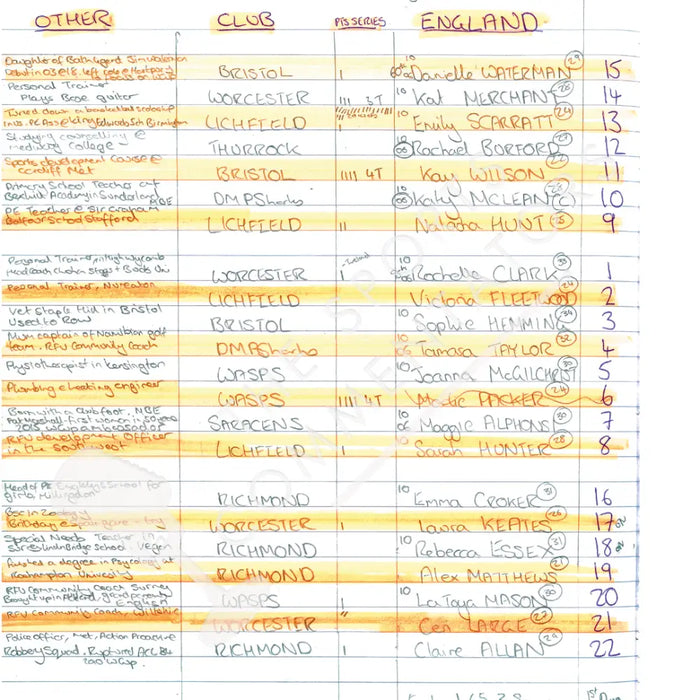 OTHER CLUB PTS SERIES ENGLAND
Daughter of Bath legend Jim Waterman
BRISTOL 1 10 Danielle WATERMAN 29 15
Personal Trainer
Plays Bass guitar WORCESTER 111 3T 10 Kat MERCHANT 28 14
Turned down a basketball scholarship
LICHFIELD 1 10 Emily SCARRATT 24 13
Studying counselling @
medway college THURROCK 10 06 Rachael BURFORD 27 12
Sports development course @
Cardiff Met BRISTOL 1111 4T Kay WILSON 22 11
Primary School Teacher at
Academy in Sunderland DMPSharks 10 06 Katy MCLEAN C 10
PE Teacher @ Sir Graham
Balfour School Stafford LICHFIELD 11 Natasha HUNT 25 9
Personal Trainer, in High Wycombe
WORCESTER 1 10 Rochelle CLARK 33 1
Personal Trainer, Nutrition
LICHFIELD Victoria FLEETWOOD 24 2
Vet Staple Hill in Bristol
Used to Row BRISTOL 10 Sophie HEMMING 34 3
Mum captain of Namibian golf
team. RFU Community Coach DMPSharks 10 06 Tamara TAYLOR 32 4
Physiotherapist in Kensington WASPS 10 Joanna MCGILCHRIST 30 5
Plumbing & Heating engineer
WASPS 1111 4T PACKER 24 6
Born with a club foot. MBE
SARACENS 10 06 Maggie ALPHONSI 30 7
RFU development Officer
in the Southwest LICHFIELD 1 10 Sarah HUNTER 28 8
Head of PE School for
girls, RICHMOND 10 Emma CROKER 31 16
Bsc in Zoology
WORCESTER 1 Laura KEATES 26 17
Special Needs Teacher in
School Vegan RICHMOND 10 Rebecca ESSEX 31 18
a degree in Psycology at
Roehampton University RICHMOND Alex MATTHEWS 21 19
RFU Community Coach Surrey
WASPS 1 10 LaToya MASON 30 20
RFU Community Coach, Wiltshire
WORCESTER " Ceri LARGE 27 21
Police officer, Met, Action Proactive
Robbery Squad. Ruptured ACL B4
2010 WCup. RICHMOND 1 Claire ALLAN 29 22
THE SPORTS
COMMENTATORS